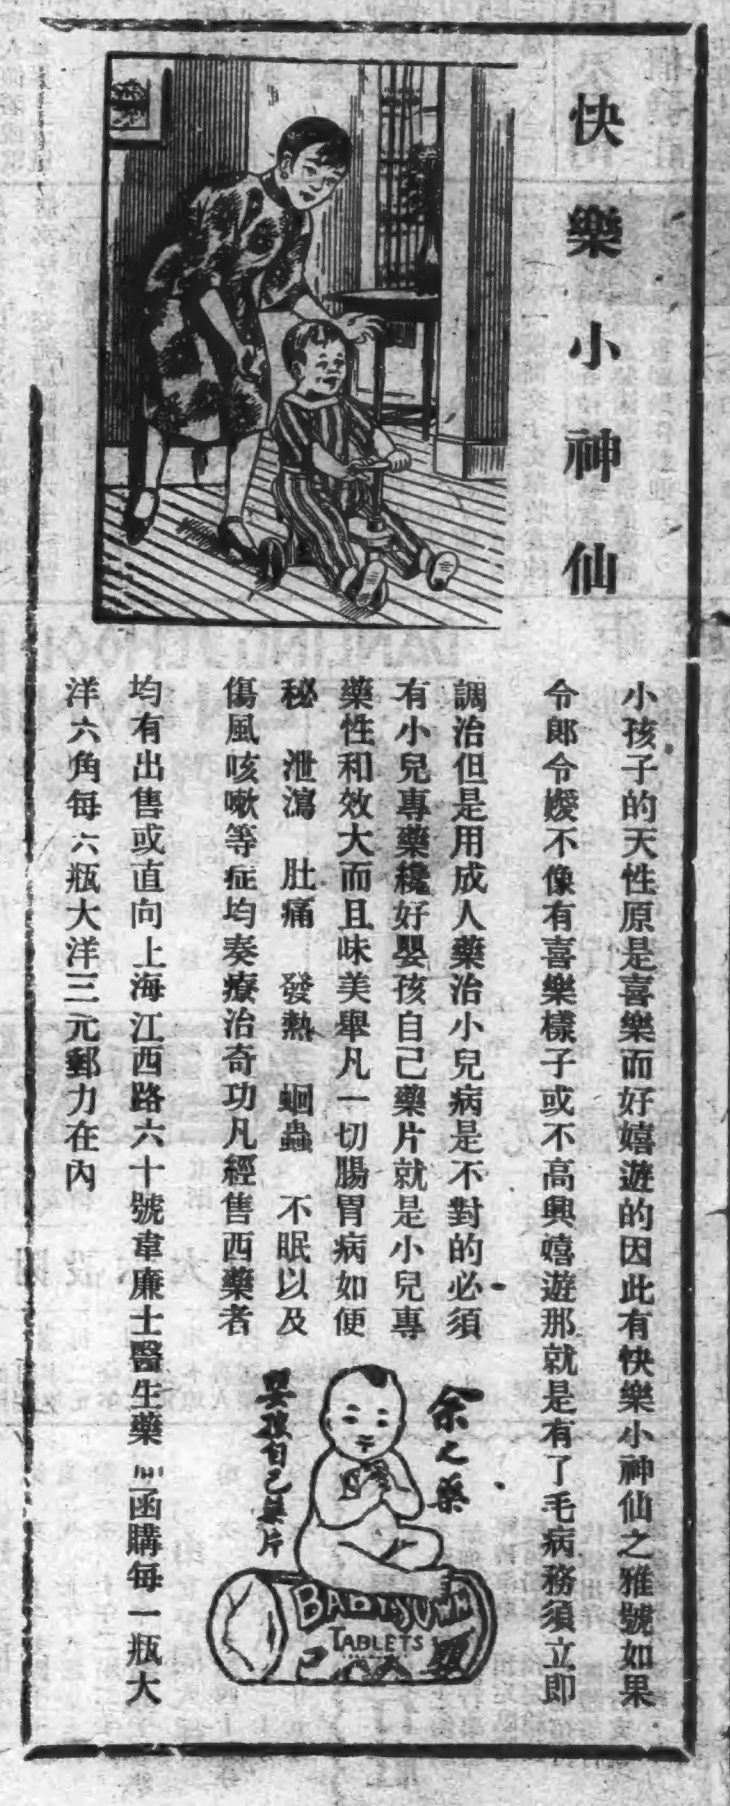 快樂小神仙
小孩子的天性原是喜樂而好嬉遊的因此有快樂小神仙之雅號如果
令郎令嬡不像有喜樂樣子或不高興嬉遊那就是有了毛病務須立即
調治但是用成人藥治小兒病是不對的必須
有小兒專藥纔好嬰孩自己藥片就是小兒專
藥性和效大而且味美舉凡一切腸胃病如便
秘 泄瀉 肚痛 發熱 蛔蟲 不眠以及
傷風咳嗽等症均奏療治奇功凡經售西藥者
均有出售或直向上海江西路六十號韋廉士醫生藥局函購每一瓶大
洋六角每六瓶大洋三元郵力在內
余之藥
嬰孩自己藥片
BABY'S OWN
TABLETS